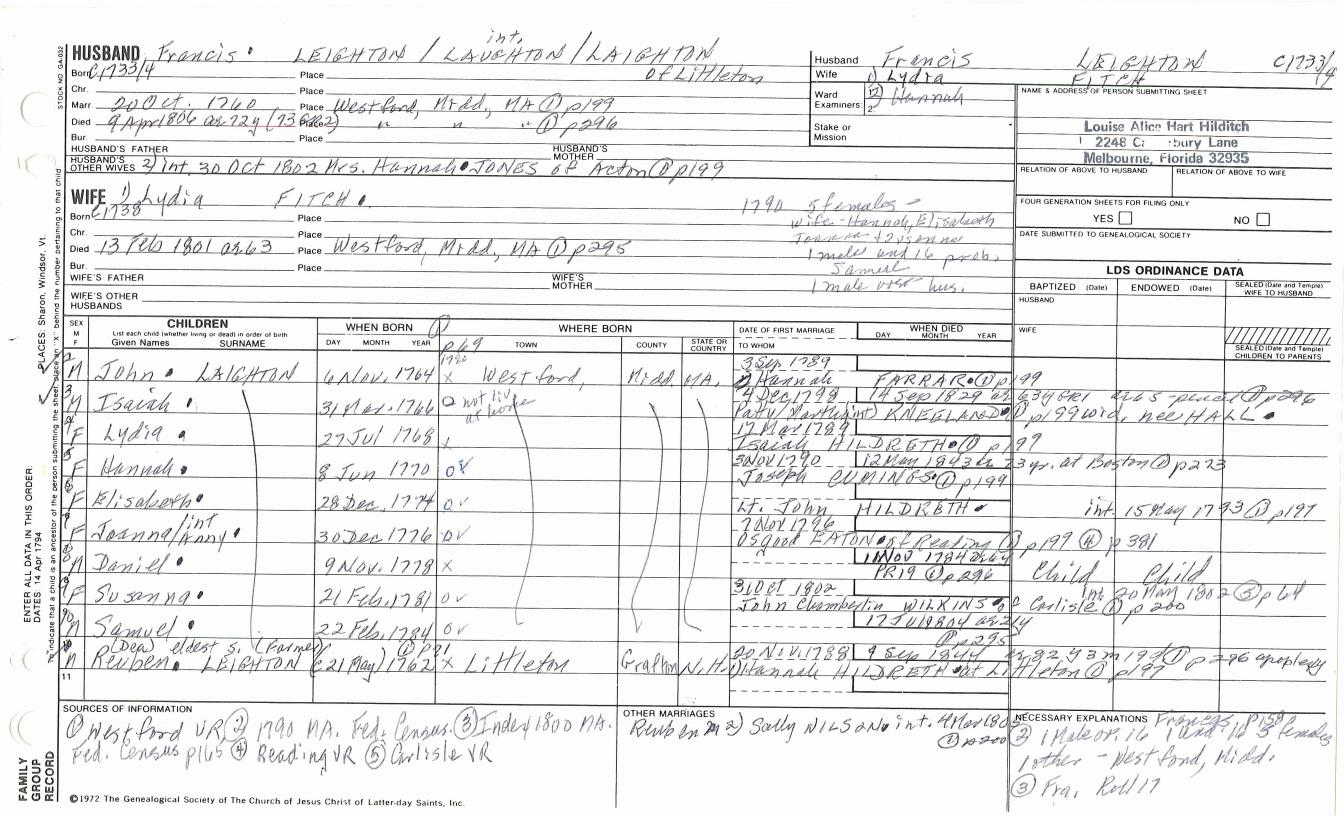 HUSBAND Francis LEIGHTON / LAUGHTON / LAIGHTON
int.
Born C1733/4 Place of Littleton
Chr. Place
Marr. 20 Oct. 1760 Place Westford, Midd, MA ① p199
Died 9 Apr 1806 ae 72y (73 GR2) Place " " " ① p296
Bur. Place
HUSBAND'S FATHER HUSBAND'S MOTHER
HUSBAND'S OTHER WIVES 2) int. 30 Oct 1802 Mrs. Hannah JONES of Acton ① p199
WIFE 1) Lydia FITCH
Born C1738 Place
Chr. Place
Died 13 Feb 1801 ae 63 Place Westford, Midd, MA ① p295
Bur. Place
WIFE'S FATHER WIFE'S MOTHER
WIFE'S OTHER HUSBANDS
1790 5 females -
wife - Hannah, Elisabeth
Joanna + Susanna
1 male und 16 prob.
Samuel
1 male over hus.
Husband Francis LEIGHTON C1733/4
Wife 1) Lydia FITCH
Ward Examiners: 1. 2. 2) Hannah
Stake or Mission
NAME & ADDRESS OF PERSON SUBMITTING SHEET
Louise Alice Hart Hilditch
2248 Ca bury Lane
Melbourne, Florida 32935
RELATION OF ABOVE TO HUSBAND RELATION OF ABOVE TO WIFE
FOUR GENERATION SHEETS FOR FILING ONLY
YES NO
DATE SUBMITTED TO GENEALOGICAL SOCIETY
LDS ORDINANCE DATA
BAPTIZED (Date) ENDOWED (Date) SEALED (Date and Temple) WIFE TO HUSBAND
HUSBAND
WIFE
SEALED (Date and Temple) CHILDREN TO PARENTS
SEX M F CHILDREN List each child (whether living or dead) in order of birth Given Names SURNAME
WHEN BORN DAY MONTH YEAR ① p69
WHERE BORN TOWN COUNTY STATE OR COUNTRY
DATE OF FIRST MARRIAGE TO WHOM
WHEN DIED DAY MONTH YEAR
1790
2 M John LAIGHTON 6 Nov. 1764 x Westford, Midd MA. 3 Sep 1789
1) Hannah FARRAR ① p199
3 M Isaiah 31 Mar. 1766 not liv at home 4 Dec 1798 14 Sep 1829 ae 63y GR1 ae 65 - pencil ① p296
Patty/Martha(int) KNEELAND ① p199 wid, nee HALL
F Lydia 27 Jul 1768 17 Mar 1789
Isaiah HILDRETH ① p199
5 F Hannah 8 Jun 1770 3 Nov 1790 12 May 1843 ae 73 yr. at Boston ① p273
Joseph CUMINGS ① p199
6 F Elisabeth 28 Dec. 1774 Lt. John HILDRETH int. 15 May 1793 ① p197
F Joanna/Anny int 30 Dec 1776 7 Nov 1796
Osgood EATON of Reading ① p199 ④ p381
8 M Daniel 9 Nov. 1778 x 1 Nov 1784 ae 6y
PR19 ① p296 Child Child
9 F Susanna 21 Feb. 1781 31 Oct 1802 int 20 May 1802 ⑤ p64
John Chamberlin WILKINS of Carlisle ① p200
10 M Samuel 22 Feb. 1784 17 Jul 1804 ae 21y
① p295
(Dea) eldest s. (Farmer) ① p71
M Reuben LEIGHTON (c 21 May) 1762 x Littleton Grafton N.H. 20 Nov. 1788 9 Sep 1844 ae 82y 3m 19d ① p296 apoplexy
1) Hannah HILDRETH at Littleton ① p197
11
SOURCES OF INFORMATION
① Westford VR ② 1790 MA. Fed. Census. ③ Index 1800 MA.
Fed. Census p165 ④ Reading VR ⑤ Carlisle VR
OTHER MARRIAGES
Reuben m 2) Sally WILSON int. 4 Mar 180
① p200
NECESSARY EXPLANATIONS Francis, p158
② 1 Male ov. 16 1 und 16 5 females
1 other - Westford, Midd.
③ Fra. Roll 17
©1972 The Genealogical Society of The Church of Jesus Christ of Latter-day Saints, Inc.
STOCK NO. GA-032
ENTER ALL DATA IN THIS ORDER:
DATES 14 Apr 1794 PLACES: Sharon, Windsor, Vt.
To indicate that a child is an ancestor of the person submitting the sheet, place an "X" behind the number pertaining to that child
FAMILY GROUP RECORD